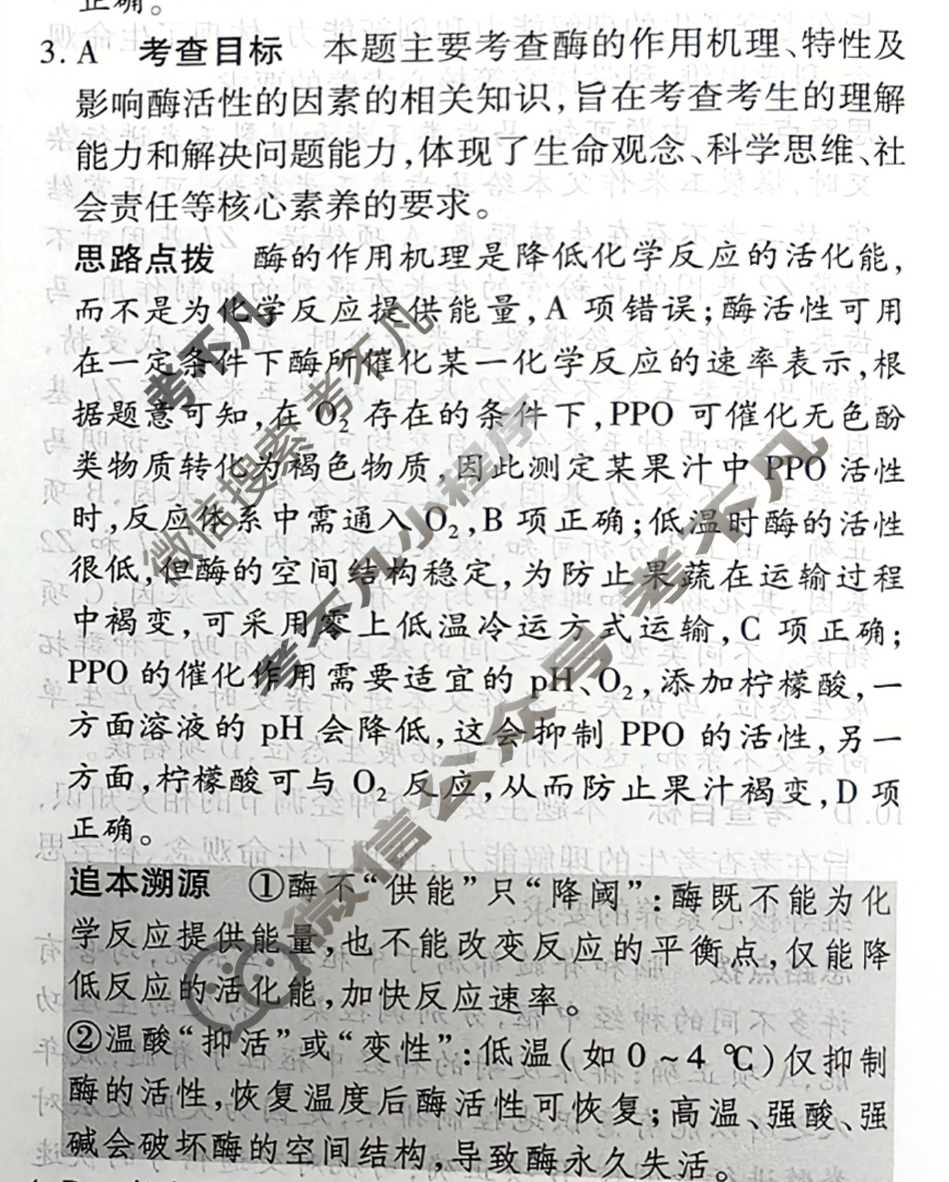 正确。
3. A 考查目标 本题主要考查酶的作用机理、特性及
影响酶活性的因素的相关知识,旨在考查考生的理解
能力和解决问题能力,体现了生命观念、科学思维、社
会责任等核心素养的要求。
思路点拨 酶的作用机理是降低化学反应的活化能,
而不是为化学反应提供能量,A 项错误;酶活性可用
在一定条件下酶所催化某一化学反应的速率表示,根
据题意可知,在 O₂ 存在的条件下,PPO 可催化无色酚
类物质转化为褐色物质,因此测定某果汁中 PPO 活性
时,反应体系中需通入 O₂,B 项正确;低温时酶的活性
很低,但酶的空间结构稳定,为防止果蔬在运输过程
中褐变,可采用零上低温冷运方式运输,C 项正确;
PPO 的催化作用需要适宜的 pH、O₂,添加柠檬酸,一
方面溶液的 pH 会降低,这会抑制 PPO 的活性,另一
方面,柠檬酸可与 O₂ 反应,从而防止果汁褐变,D 项
正确。
追本溯源 ①酶不“供能”只“降阈”:酶既不能为化
学反应提供能量,也不能改变反应的平衡点,仅能降
低反应的活化能,加快反应速率。
②温酸“抑活”或“变性”:低温(如 0 ~ 4 ℃)仅抑制
酶的活性,恢复温度后酶活性可恢复;高温、强酸、强
碱会破坏酶的空间结构,导致酶永久失活。
考不凡
微信搜索 考不凡
考不凡小程序
微信公众号 考不凡